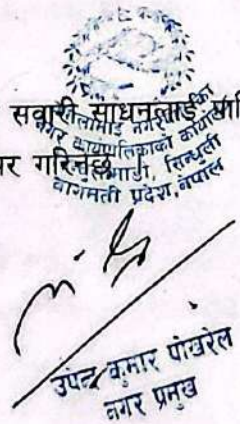 सवारी साधनलाई
कमलामाई नगरपालिका
नगर कार्यपालिकाको कार्यालय
गरिनेछ
सिन्धुली
वागमती प्रदेश, नेपाल
उपेन्द्र कुमार पोखरेल
नगर प्रमुख